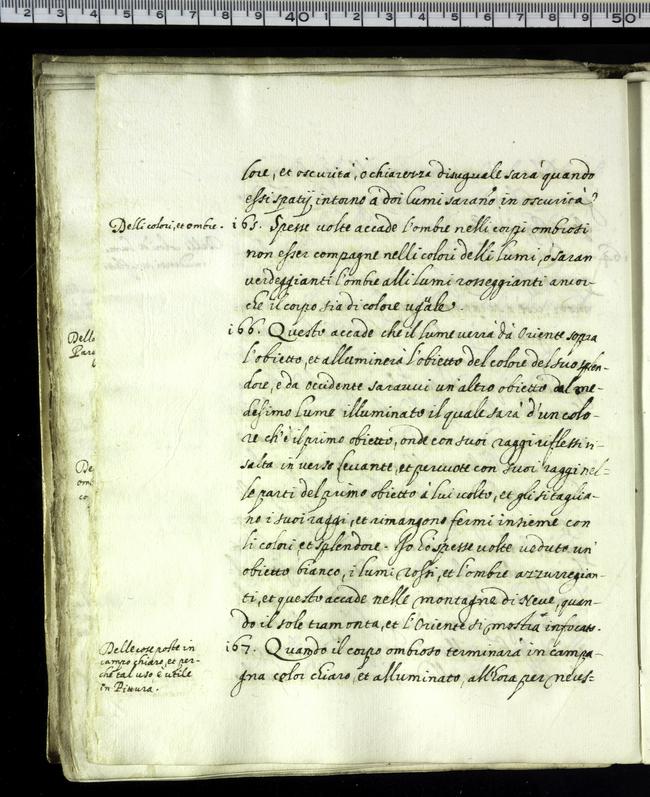 lore, et oscurità, ò chiarezza disuguale sarà quando
essi spatij intorno à doi lumi sarano in oscurità
Delli colori, et ombre.
165. Spesse volte accade l'ombre nelli corpi ombrosi
non esser compagne nelli colori delli lumi, o saran
verdeggianti l'ombre alli lumi rosseggianti ancor-
che il corpo sia di colore uguale.
166. Questo accade che il lume verrà da Oriente sopra
l'obietto, et alluminerà l'obietto del colore del suo splen-
dore, e da occidente saravvi un'altro obietto dal me-
desimo lume illuminato il quale sarà d'un colo-
re ch'è il primo obietto, onde con suoi raggi riflessi ri-
salta in verso Levante, et percuote con suoi raggi nel-
le parti del primo obietto à lui volto, et gli si taglia-
no i suoi raggi, et rimangono fermi insieme con
li colori, et splendore. Io hò spesse volte veduto un
obietto bianco, i lumi rossi, et l'ombre azzurregian-
ti, et questo accade nelle montagne di Neve, quan-
do il sole tramonta, et l'Oriente si mostra infocato.
Delle cose poste in
campo chiaro, et per-
che tal uso è utile
in Pittura.
167. Quando il corpo ombroso terminarà in campa-
gna color chiaro, et alluminato, all'hora per neces-
Delle
Par
De
om
co